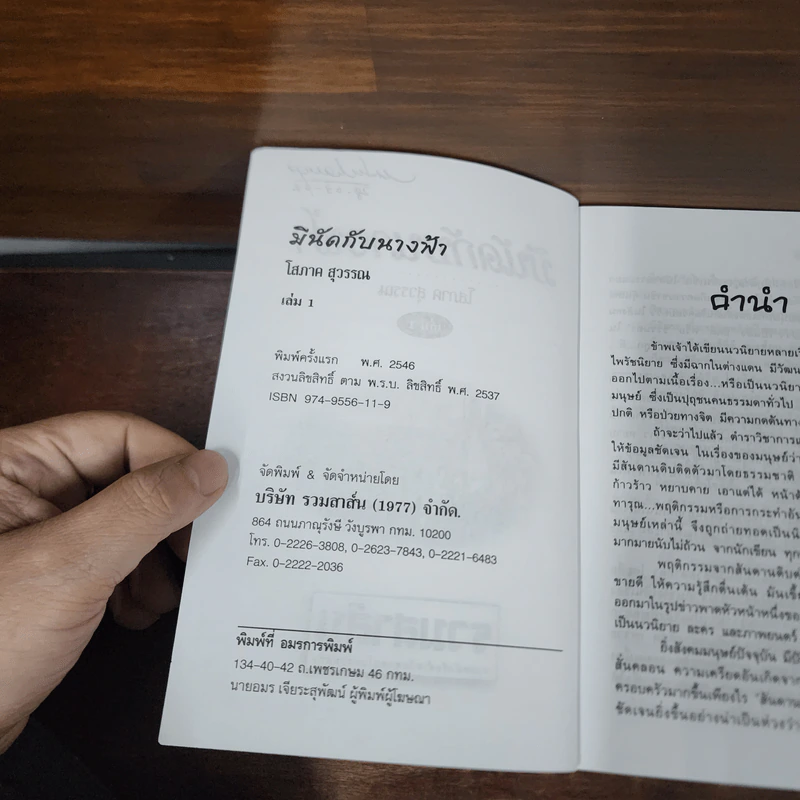 มีนัดกับนางฟ้า
โสภาค สุวรรณ
เล่ม 1
พิมพ์ครั้งแรก พ.ศ. 2546
สงวนลิขสิทธิ์ ตาม พ.ร.บ. ลิขสิทธิ์ พ.ศ. 2537
ISBN 974-9556-11-9
จัดพิมพ์ & จัดจำหน่ายโดย
บริษัท รวมสาส์น (1977) จำกัด.
864 ถนนภาณุรังษี วังบูรพา กทม. 10200
โทร. 0-2226-3808, 0-2623-7843, 0-2221-6483
Fax. 0-2222-2036
พิมพ์ที่ อมรการพิมพ์
134-40-42 ถ.เพชรเกษม 46 กทม.
นายอมร เจียระสุพัฒน์ ผู้พิมพ์ผู้โฆษณา
คำนำ
ข้าพเจ้าได้เขียนนวนิยายหลายเ
ไพรัชนิยาย ซึ่งมีฉากในต่างแดน มีวัฒน
ออกไปตามเนื้อเรื่อง...หรือเป็นนวนิยา
มนุษย์ ซึ่งเป็นปุถุชนคนธรรมดาทั่วไป
ปกติ หรือป่วยทางจิต มีความกดดันทาง
ถ้าจะว่าไปแล้ว ตำราวิชาการแ
ให้ข้อมูลชัดเจน ในเรื่องของมนุษย์ว่า
มีสันดานดิบติดตัวมาโดยธรรมชาติ
ก้าวร้าว หยาบคาย เอาแต่ได้ หน้าด้
ทารุณ...พฤติกรรมหรือการกระทำอัน
มนุษย์เหล่านี้ จึงถูกถ่ายทอดเป็นนิ
มากมายนับไม่ถ้วน จากนักเขียน ทุก
พฤติกรรมจากสันดานดิบต
ขายดี ให้ความรู้สึกตื่นเต้น มันเขี้
ออกมาในรูปข่าวพาดหัวหน้าหนึ่งของ
เป็นนวนิยาย ละคร และภาพยนตร์
ยิ่งสังคมมนุษย์ปัจจุบัน มีปั
สั่นคลอน ความเครียดอันเกิดจาก
ครอบครัวมากขึ้นเพียงไร "สันดาน
ชัดเจนยิ่งขึ้นอย่างน่าเป็นห่วงว่า